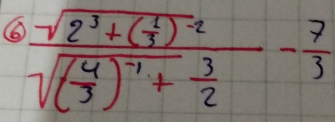 ⑥ \frac{\sqrt{2^3 + (\frac{1}{3})^{-2}}}{\sqrt{(\frac{4}{3})^{-1} + \frac{3}{2}}} - \frac{7}{3}